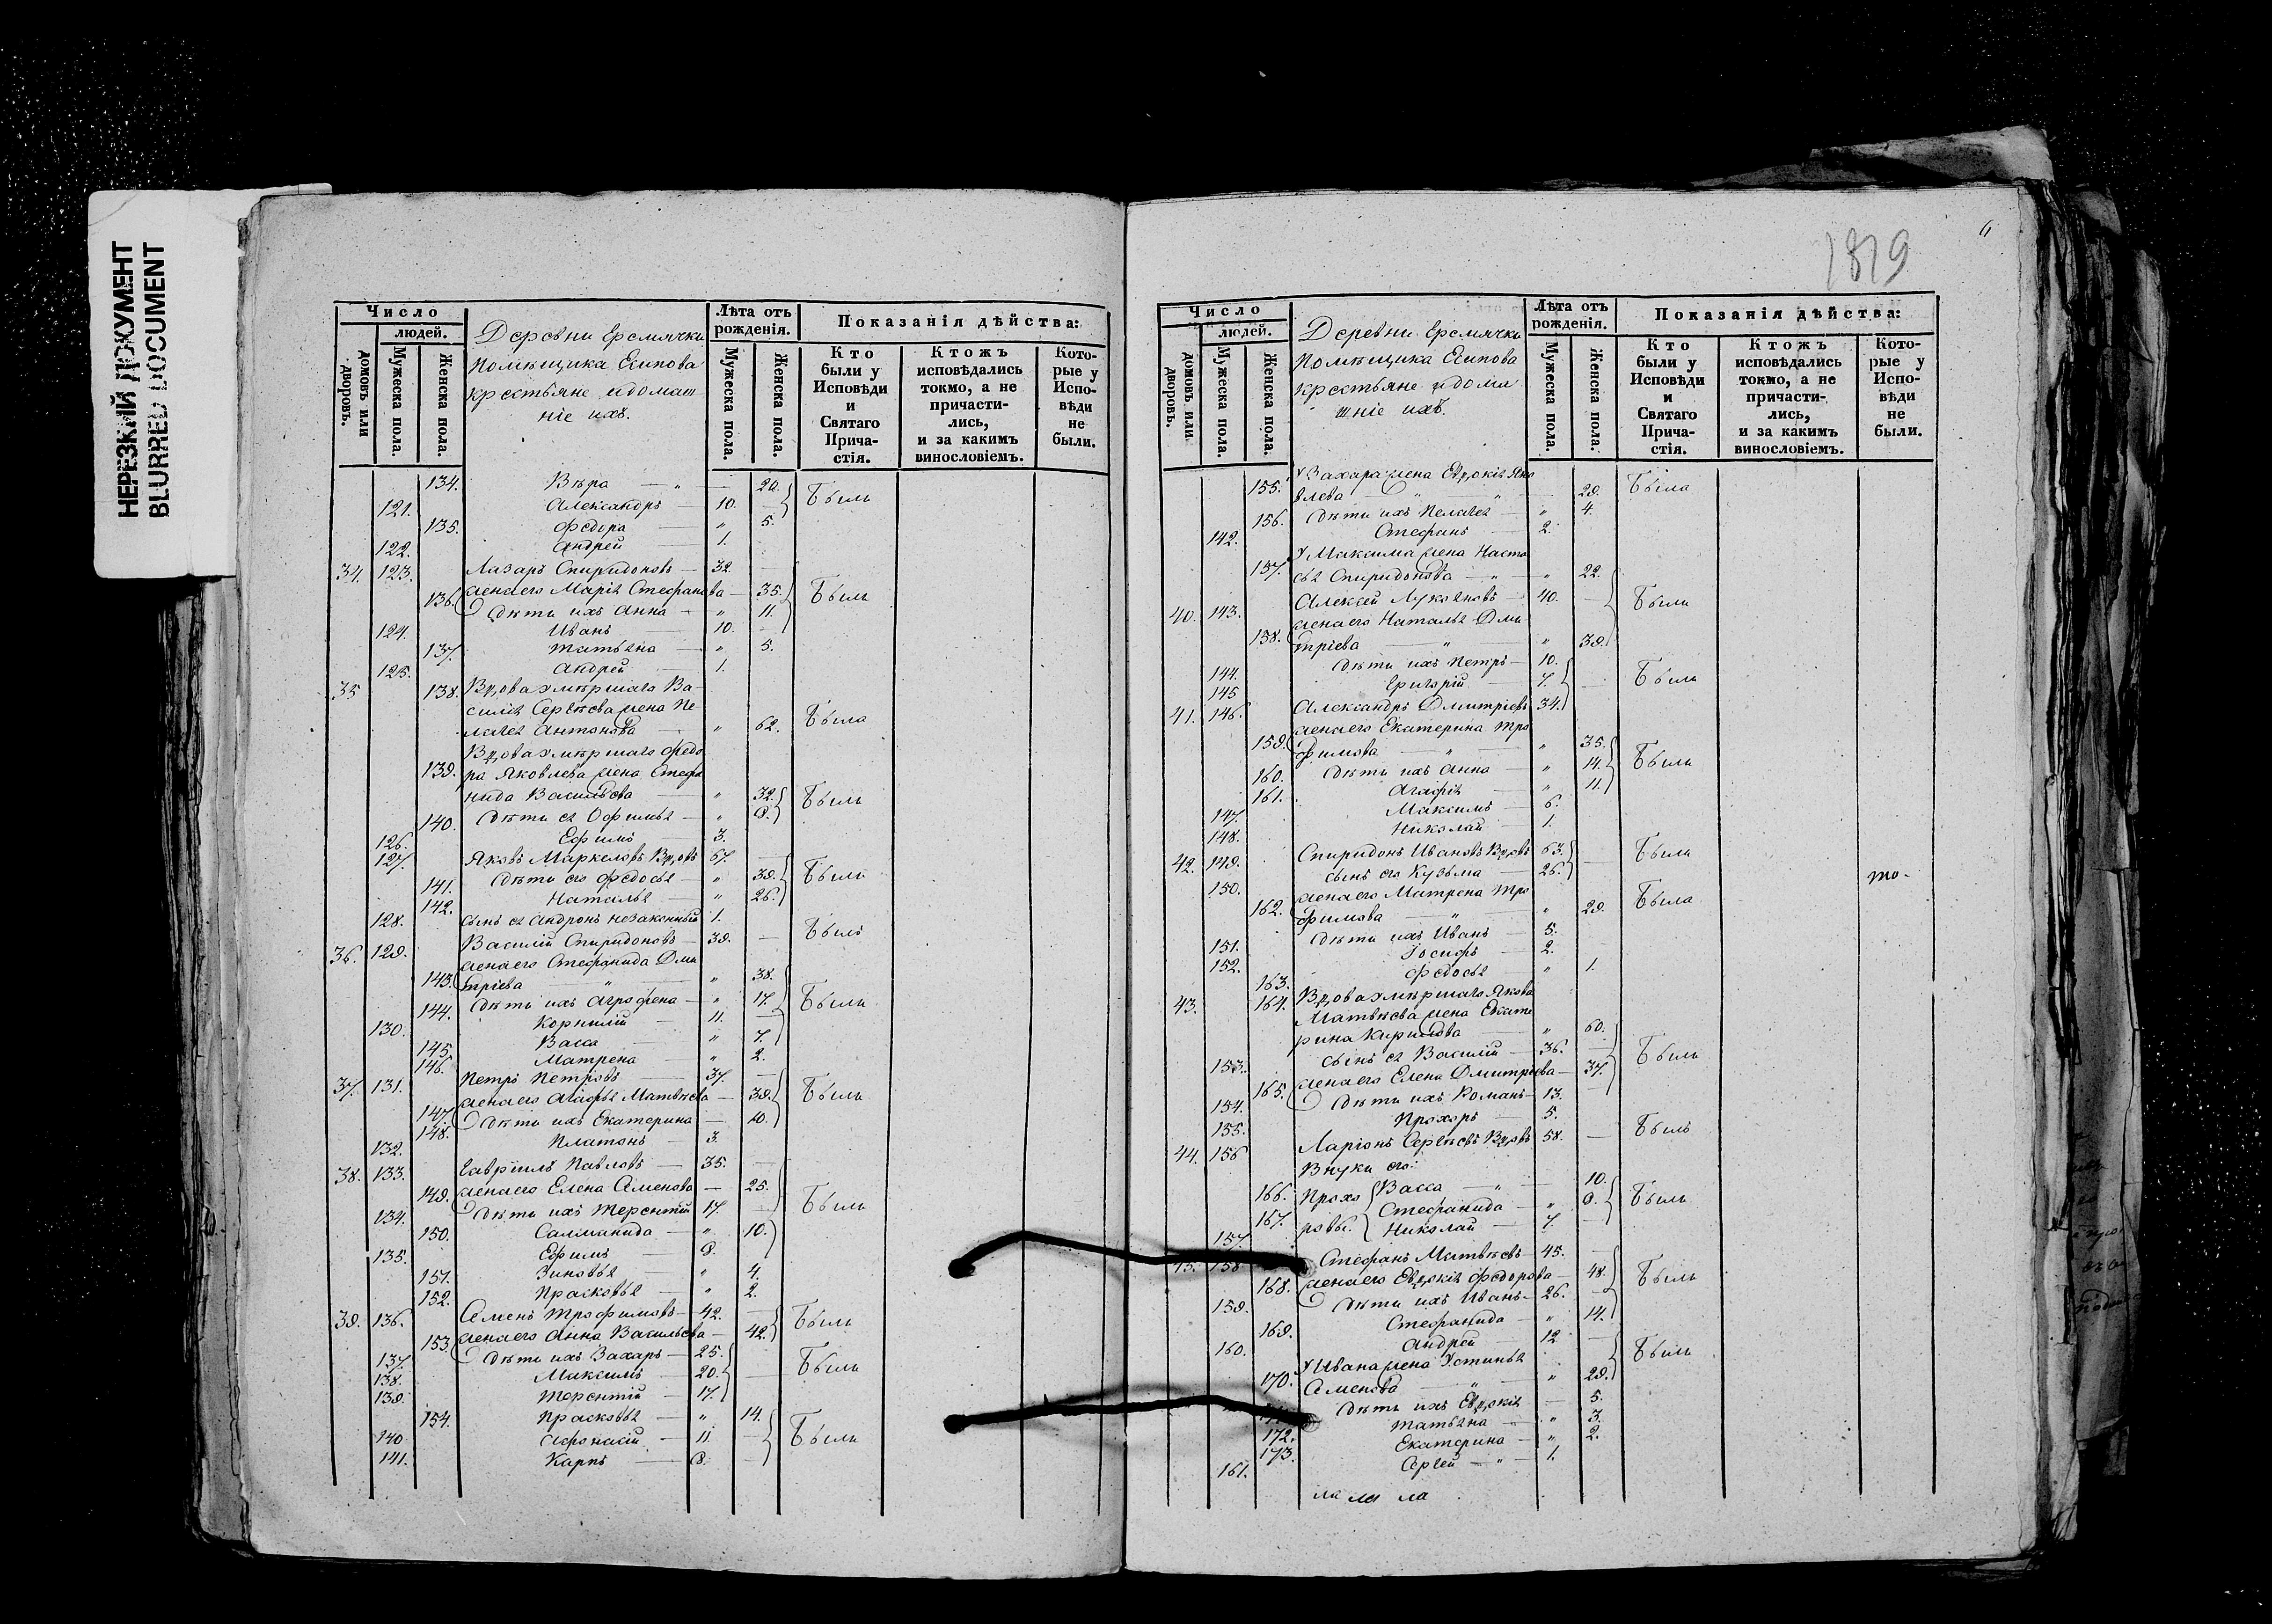 НЕРЕЗКИЙ ДОКУМЕНТ
BLURRED DOCUMENT
Число
людей.
домовъ или дворовъ.
Мужеска пола.
Женска пола.
Деревни Еремячки
Помѣщика Есипова
крестьяне идомаш
ніе ихъ.
Лѣта отъ рожденія.
Мужеска пола.
Женска пола.
Показанія дѣйства:
Кто были у Исповѣди и Святаго Прича-стія.
Ктожъ исповѣдались токмо, а не причасти-лись, и за какимъ винословіемъ.
Кото-рые у Испо-вѣди не были.
134. Вѣра — " — 20. Были
121. Александръ — 10. —
135. Федора — " 5.
122. Андрей — 1.
34. 123. Лазарь Спиридоновъ — 32.
136. жена его Марія Стефанова — 35. Были
Дѣти ихъ Анна — " 11.
124. Иванъ 10. —
137. Татьяна — " 5.
125. Андрей — 1.
35 138. Вдова умершаго Ва-
силія Сергѣева жена Пе
лагея Антонова — " 62. Была
Вдова умершаго Федо
139. ра Яковлева жена Стефа
нида Васильева — " 32. Были
140. Дѣти ея Офимья — " 8.
126. Ефимъ 3.
127. Яковъ Маркеловъ Вдовъ 67. —
141. Дѣти его Федосья — " 39. Были
142. Наталья — " 26.
128. сынъ ея Андронъ незаконный 1.
36. 129. Василій Спиридоновъ — 39. — Былъ
жена его Стефанида Дми
143. тріева — " — " 38.
144. Дѣти ихъ Агрофена — " 17. Были
130. Корнилій — 11. —
145. Васса — " 7.
146. Матрена — " 2.
37. 131. Петръ Петровъ — 37. —
147. жена его Агафья Матвѣева — 39. Были
148. Дѣти ихъ Екатерина — 10.
132. Платонъ — 3.
38. 133. Гавріилъ Павловъ — 35. —
149. жена его Елена Аменова — 25.
134. Дѣти ихъ Терентій 17. — Были
150. Саломанида — " 10.
135. Ефимъ — 8.
151. Зиновья — " 4.
152. Прасковья — " 2.
39. 136. Семенъ Трофимовъ — 42. —
153. жена его Анна Васильева — 42. Были
137. Дѣти ихъ Захаръ — 25.
138. Максимъ — 20. — Были
139. Терентій — 17.
154. Прасковья — " 14.
140 Афонасій — 11. — Были
141. Карпъ — 8. —
1819
6
Число
людей.
домовъ или дворовъ.
Мужеска пола.
Женска пола.
Деревни Еремячки
Помѣщика Есипова
крестьяне идома
шніе ихъ.
Лѣта отъ рожденія.
Мужеска пола.
Женска пола.
Показанія дѣйства:
Кто были у Исповѣди и Святаго Прича-стія.
Ктожъ исповѣдались токмо, а не причасти-лись, и за какимъ винословіемъ.
Кото-рые у Испо-вѣди не были.
У Захара жена Евдокія Яко
155. влева — " — " — 29. Была
156. Дѣти ихъ Пелагея — " 4.
142. Стефанъ — 2.
У Максима жена Наста
157. сья Спиридонова — " — " 22.
40. 143. Алексѣй Лукьяновъ — 40. — Были
жена его Наталья Дми
158. тріева — " — " 39.
144. Дѣти ихъ Петръ — 10.
145 Григорій — 7. — Были
41. 146. Александръ Дмитріевъ 34.
жена его Екатерина Тро
159. фимова — " — " 35.
160. Дѣти ихъ Анна — " 14. Были
161. Агафія — " 11.
147. Максимъ — 6.
148. Николай — 1.
42. 149. Спиридонъ Ивановъ Вдовъ 63. — Были
150. сынъ его Кузьма — 26. то-
жена его Матрена Тро
162. фимова — " — " 29. Была
151. Дѣти ихъ Иванъ — 5.
152. Іосифъ — 2.
163. Федосья — " 1.
43. 164. Вдова умершаго Якова
Матвѣева жена Екате
рина Кирилова — " 60.
153. сынъ ея Василій — 36. — Были
165. жена его Елена Дмитріева — 37.
154. Дѣти ихъ Романъ — 13. —
155. Прохоръ — 5.
44. 156 Ларіонъ Сергѣевъ Вдовъ 58. — Былъ
Внуки его
166. Прохо Васса — " — 10.
167. ровы. Стефанида — " 9. Были
157. Николай — 7. —
45. 158 Стефанъ Матвѣевъ — 45. —
168. жена его Евдокія Федорова — 48. Были
159. Дѣти ихъ Иванъ — 26. —
169. Стефанида — " 14.
160. Андрей — 12 —
У Ивана жена Устинья Были
170. Аменова — " — " 29.
Дѣти ихъ Евдокія — 5.
172. Татьяна — " 3.
173. Екатерина — " 2.
161. Сергѣй — " — 1.
ла ла ла